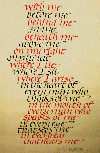 with me
before me
behind me
in me
beneath me
above me
on my right
on my left
where I lie
where I sit
where I arise
in the heart of
every man who
thinks of me
in the mouth of
every man who
speaks of me
in every eye
that sees me
in every ear
that hears me